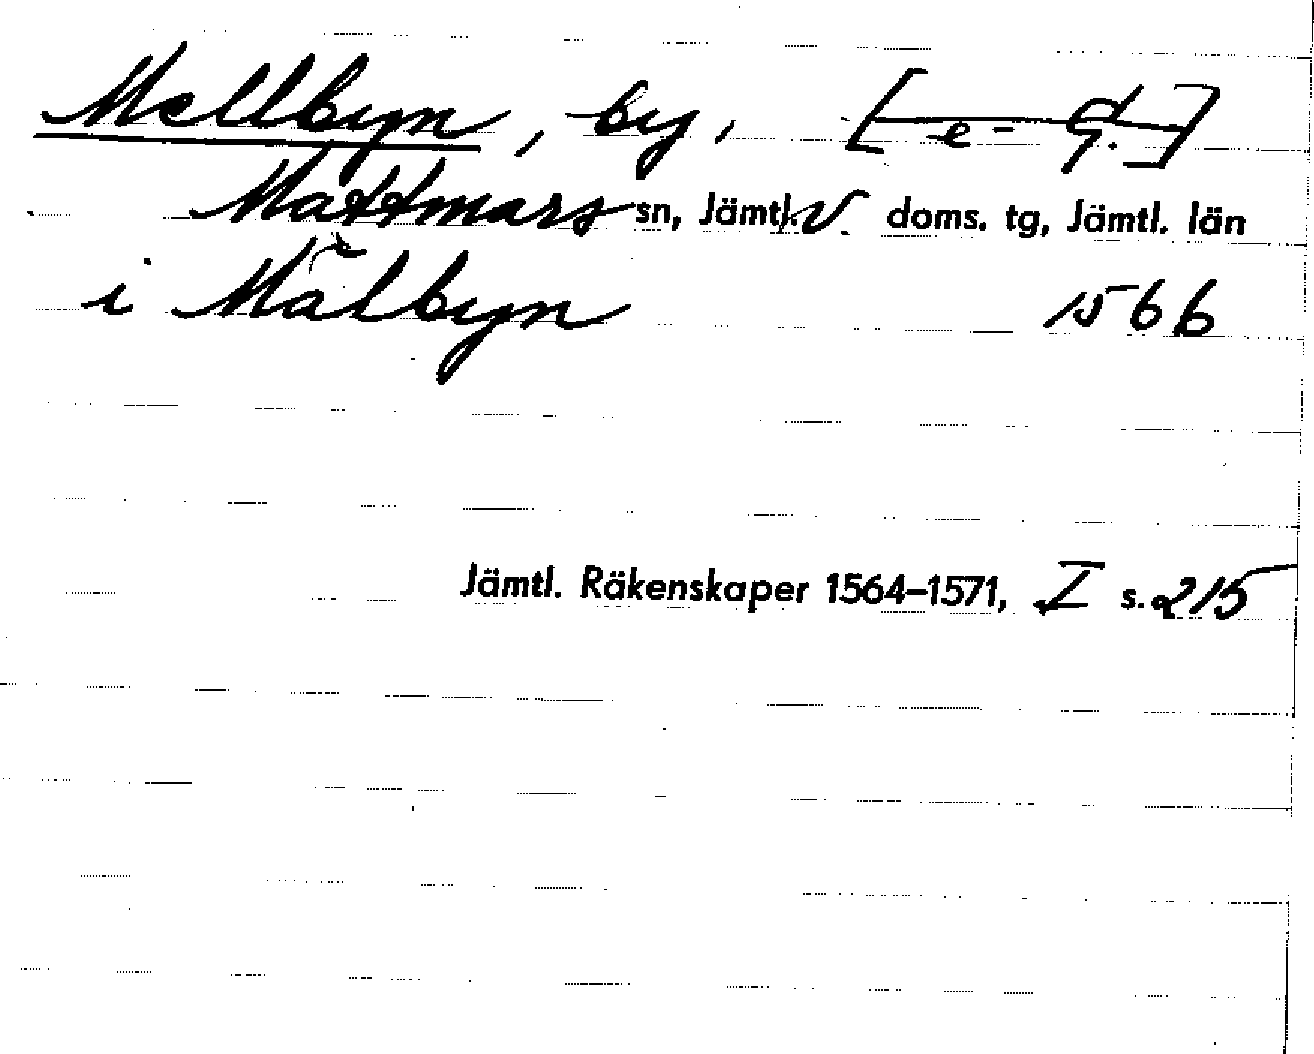 Mellbyn, by,
Mattmars sn, Jämtl. V. doms. tg, Jämtl. län
i Mälbyn 1566
Jämtl. Räkenskaper 1564–1571, I s. 215